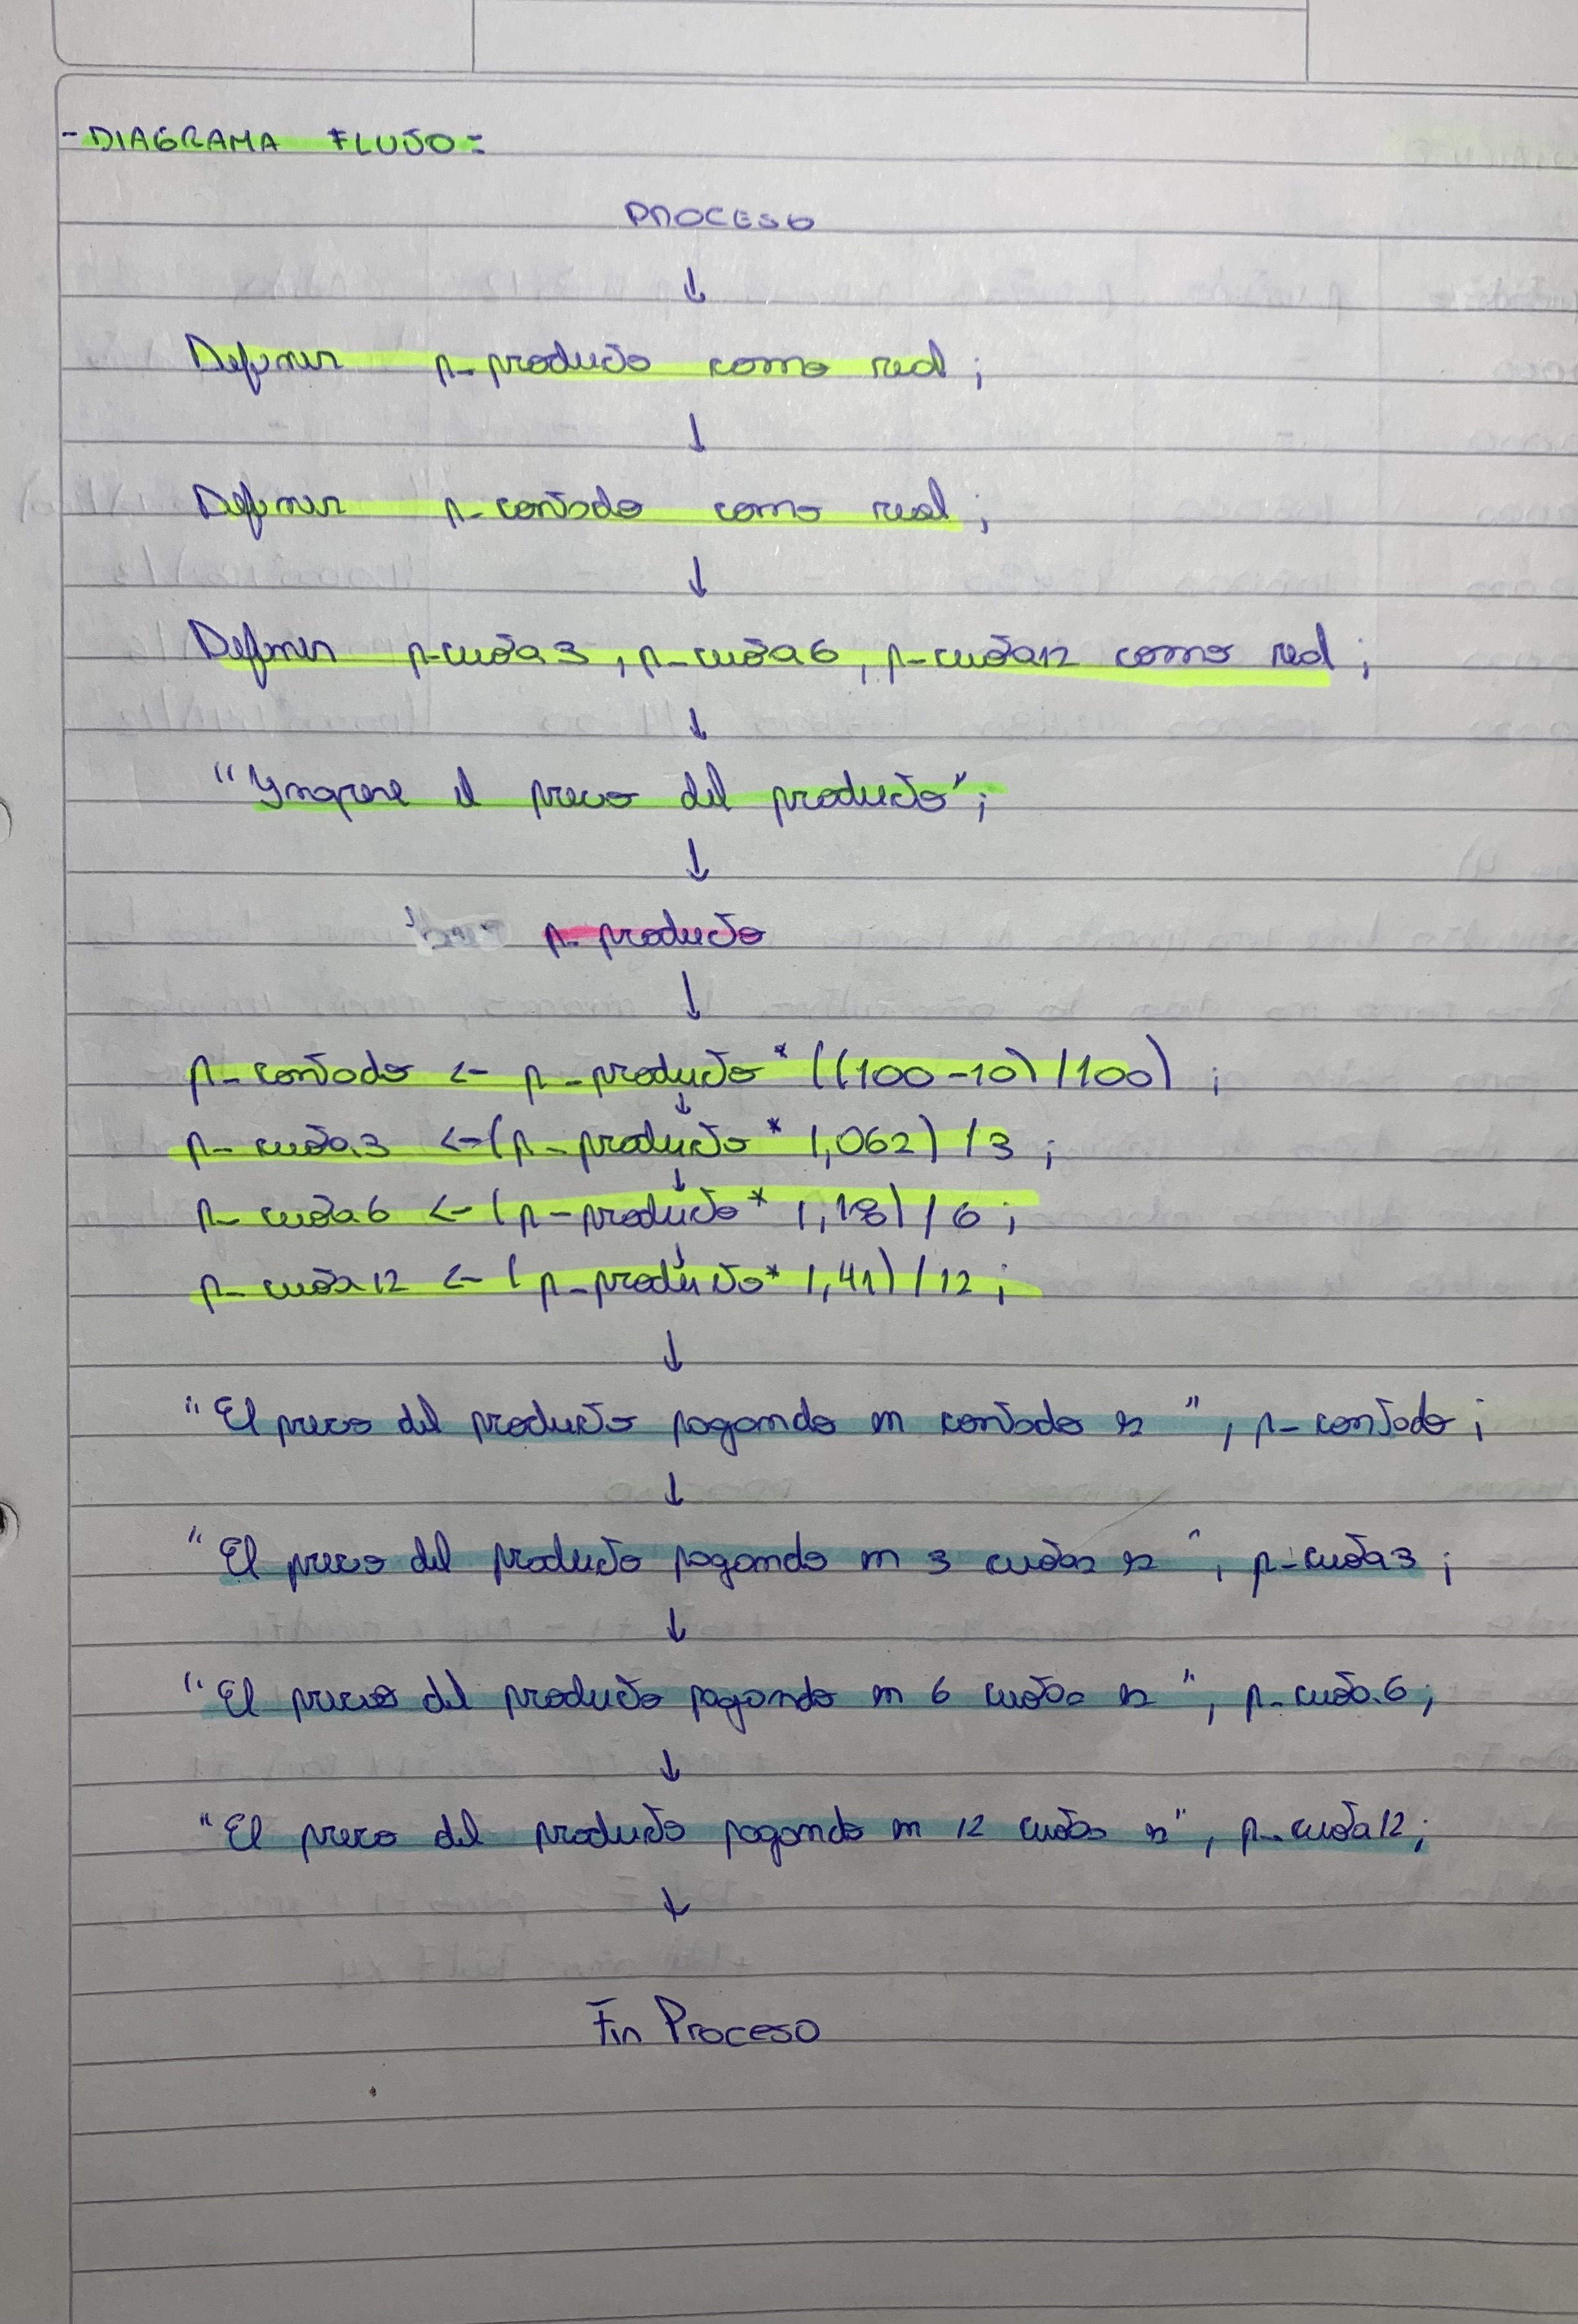 - DIAGRAMA FLUJO:
PROCESO
↓
Definir p_producto como real;
↓
Definir p_contado como real;
↓
Definir p_cuota3, p_cuota6, p_cuota12 como real;
↓
"Ingrese el precio del producto";
↓
p_producto
↓
p_contado <- p_producto * ((100-10)/100);
↓
p_cuota3 <- (p_producto * 1,062) / 3;
↓
p_cuota6 <- (p_producto * 1,18) / 6;
↓
p_cuota12 <- (p_producto * 1,41) / 12;
↓
"El precio del producto pagando en contado es ", p_contado;
↓
"El precio del producto pagando en 3 cuotas es ", p_cuota3;
↓
"El precio del producto pagando en 6 cuotas es ", p_cuota6;
↓
"El precio del producto pagando en 12 cuotas es", p_cuota12;
↓
Fin Proceso